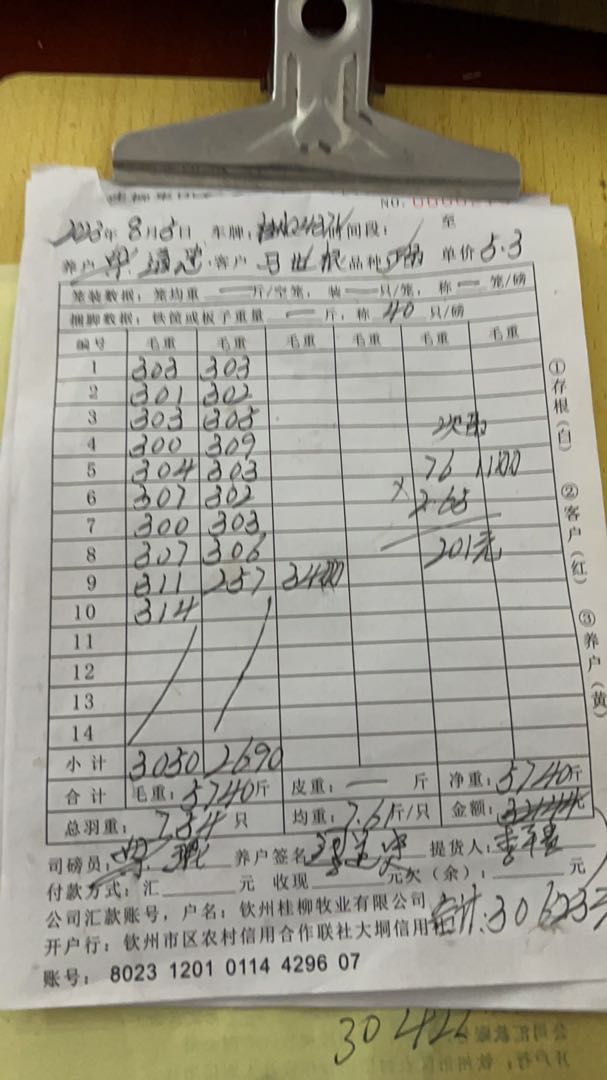 NO.
2023年 8月5日 车牌: 时间段: 至
养户 客户 马世根 品种 单价 5.3
笼装数据: 笼均重 — 斤/空笼, 装 — 只/笼, 称 — 笼/磅
捆脚数据: 铁筐或板子重量 — 斤, 称 40 只/磅
编号 毛重 毛重 毛重 毛重 毛重 毛重
1 303 303
2 301 302
3 303 305
4 300 309
5 304 303 76
6 307 302 × 2.65
7 300 303
8 307 306 201元
9 311 257
10 314
11
12
13
14
小计 3050 2690
合计 毛重: 5740斤 皮重: — 斤 净重: 5740斤
总羽重: 754 只 均重: 7.6斤/只 金额:
司磅员: 养户签名 提货人:
付款方式: 汇 元 收现 元欠(余): 元
公司汇款账号, 户名: 钦州桂柳牧业有限公司 合计: 30623元
开户行: 钦州市区农村信用合作联社大垌信用社
账号: 8023 1201 0114 4296 07
①存根(白) ②客户(红) ③养户(黄)